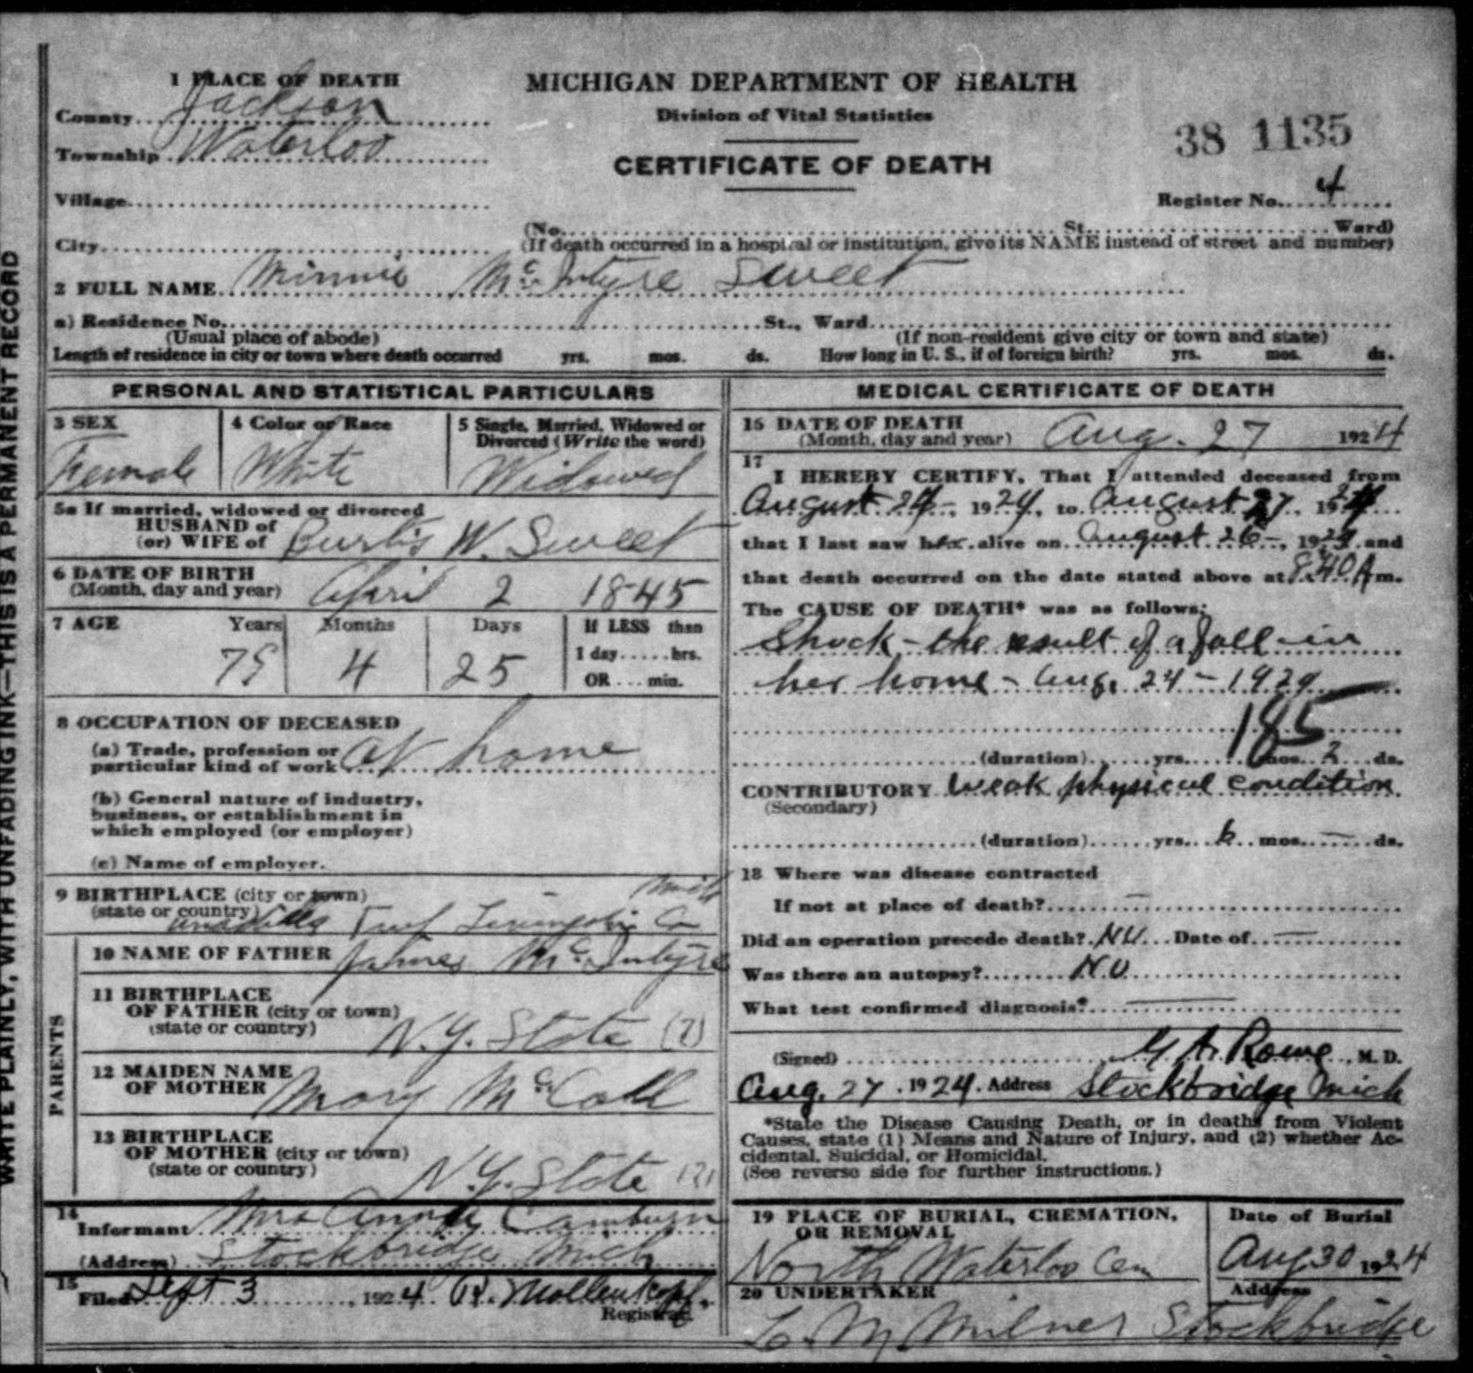 1 PLACE OF DEATH
MICHIGAN DEPARTMENT OF HEALTH
Division of Vital Statistics
CERTIFICATE OF DEATH
38 1135
County Jackson
Township Waterloo
Register No. 4
Village
City
(No. St. Ward)
(If death occurred in a hospital or institution, give its NAME instead of street and number)
2 FULL NAME Minnie McIntyre Sweet
a) Residence No. St., Ward
(Usual place of abode) (If non-resident give city or town and state)
Length of residence in city or town where death occurred yrs. mos. ds. How long in U. S., if of foreign birth? yrs. mos. ds.
WRITE PLAINLY, WITH UNFADING INK—THIS IS A PERMANENT RECORD
PERSONAL AND STATISTICAL PARTICULARS
3 SEX
Female
4 Color or Race
White
5 Single, Married, Widowed or
Divorced (Write the word)
Widowed
5a If married, widowed or divorced
HUSBAND of
(or) WIFE of Burtis W. Sweet
6 DATE OF BIRTH
(Month, day and year) April 2 1845
7 AGE Years Months Days If LESS than
1 day......hrs.
OR ....min.
79 4 25
8 OCCUPATION OF DECEASED
(a) Trade, profession or
particular kind of work at home
(b) General nature of industry,
business, or establishment in
which employed (or employer)
(c) Name of employer.
9 BIRTHPLACE (city or town)
(state or country) Unadilla Twp Livingston Co Mich
PARENTS
10 NAME OF FATHER James McIntyre
11 BIRTHPLACE
OF FATHER (city or town)
(state or country) N.Y. State (?)
12 MAIDEN NAME
OF MOTHER Mary McCall
13 BIRTHPLACE
OF MOTHER (city or town)
(state or country) N.Y. State (?)
14
Informant Mrs Camburn
(Address) Stockbridge Mich
15
Filed Sept 3, 1924 R. Mollenkopf.
Registrar.
MEDICAL CERTIFICATE OF DEATH
16 DATE OF DEATH
(Month, day and year) Aug. 27 1924
17
I HEREBY CERTIFY, That I attended deceased from
August 24, 1924, to August 27, 1924
that I last saw her alive on August 26, 1924 and
that death occurred on the date stated above at 8:40 A m.
The CAUSE OF DEATH* was as follows:
Shock - the result of a fall - in
her home - Aug. 24 - 1924
185
(duration) yrs. mos. 2 ds.
CONTRIBUTORY Weak physical condition
(Secondary)
(duration) yrs. 6 mos. — ds.
18 Where was disease contracted
If not at place of death? —
Did an operation precede death? No Date of —
Was there an autopsy? No
What test confirmed diagnosis? —
(Signed) Rowe, M. D.
Aug. 27, 1924. Address Stockbridge Mich
*State the Disease Causing Death, or in deaths from Violent
Causes, state (1) Means and Nature of Injury, and (2) whether Ac-
cidental, Suicidal, or Homicidal.
(See reverse side for further instructions.)
19 PLACE OF BURIAL, CREMATION,
OR REMOVAL
North Waterloo Cem
Date of Burial
Aug 30 1924
20 UNDERTAKER
Address
Milner Stockbridge